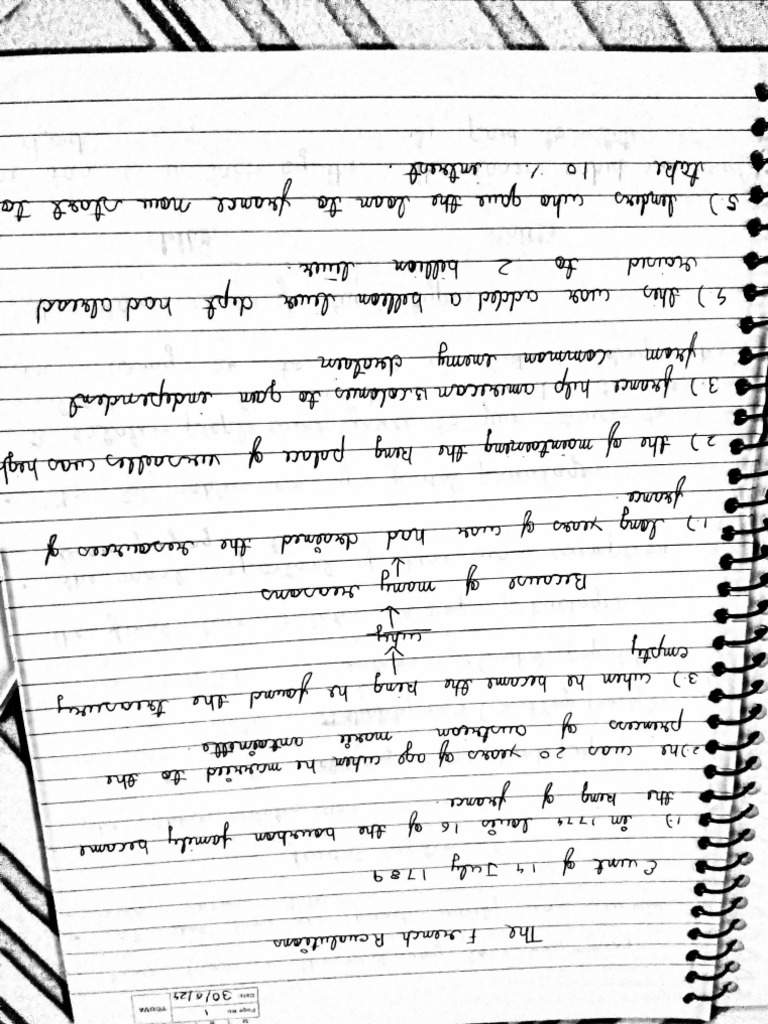 Page No. 1
YOUVA
The French Revolutions
Event of 14 July 1789
1.) In 1774 Louis 16 of the bourbon family become
the king of france.
2.) he was 20 years of age when he married to the
princess of austrian marie antoinette
3.) when he became the king he found the treasury
empty
why
Because of many reasons
1.) long years of war had drained the resources of
france.
2.) the of maintaining the king palace of versailles was high
3.) france help american 13 colonies to gain independent
from common enemy
4.) this war added a billion liver dept had alread
raised to 2 billion liver.
5.) lenders who gave the loan to france now start to
take 10 % intrest.